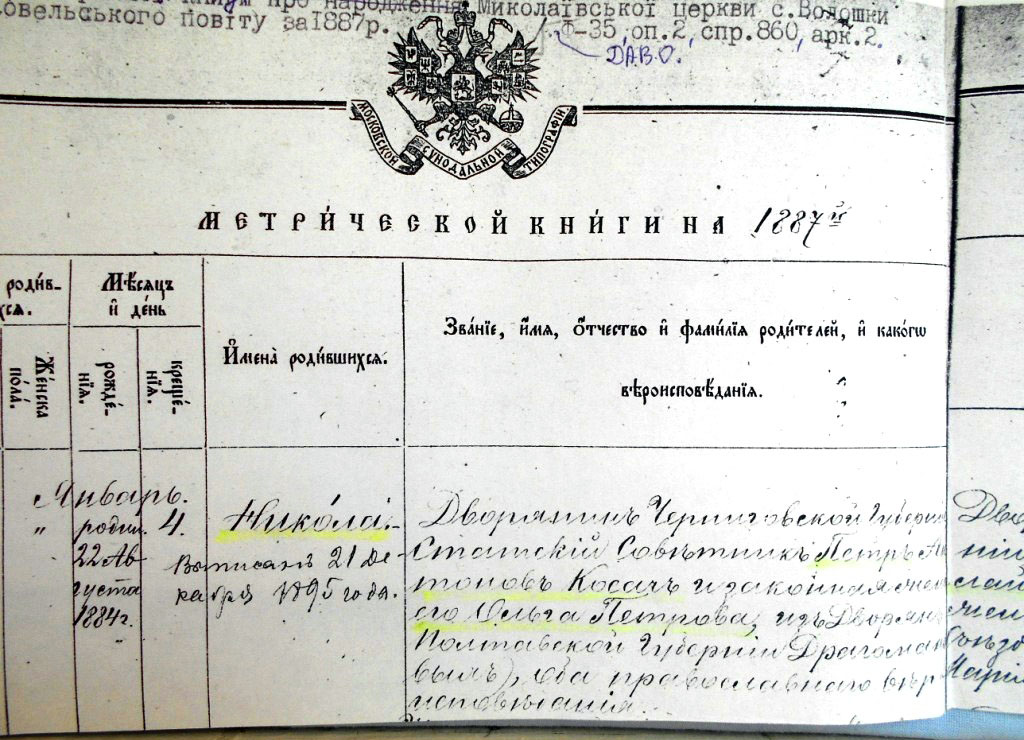 про народження Миколаївської церкви с.Волошки
овельського повіту за 1887р.
Ф-35, оп.2, спр.860, арк.2.
ДАВО.
МОСКОВСКОЙ СѴНОДАЛЬНОЙ ТИПОГРАФІИ
МЕТРИ́ЧЕСКОЙ КНИ́ГИ НА 1887й
роди́в-
хся.
Мѣ́сяцъ
и де́нь
Имена̀ роди́вшихся.
Зва́нїе, и́мя, о́тчество и фами́лїя роди́телей, и како́гѡ
вѣроисповѣ́данїя.
Же́нска
по́ла.
рожде́-
нїя.
креще́-
нїя.
Январь.
"
родил.
22 Ав
густа
1884г.
4.
Никола́й
Выписанъ 21 де-
кабря 1895 года.
Дворянинъ Черниговской Губерні
Статскій Совѣтникъ Петръ Ан
тоновъ Косачъ и законная жена
его Ольга Петрова, изъ Дворянъ
Полтавской Губерніи Драгоман
выхъ), оба православнаго вѣр
исповѣданія.
Дво